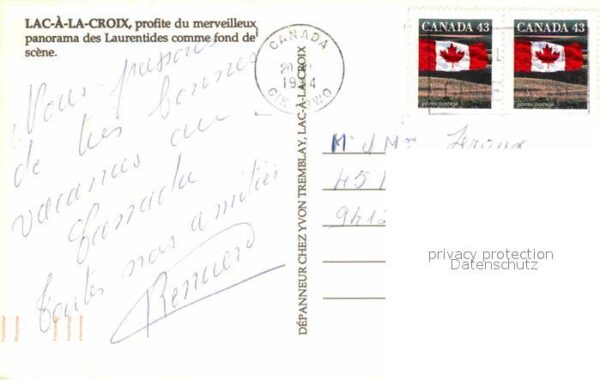 LAC-À-LA-CROIX, profite du merveilleux
panorama des Laurentides comme fond de
scène.
Nous passons
de très bonnes
vacances au
Cannada
toutes nos amitiés
DÉPANNEUR CHEZ YVON TREMBLAY, LAC-À-LA-CROIX
CANADA
1994
CANADA 43
postes/postage
CANADA 43
postes/postage
Mr & Mme Leroux
451
9412
privacy protection
Datenschutz